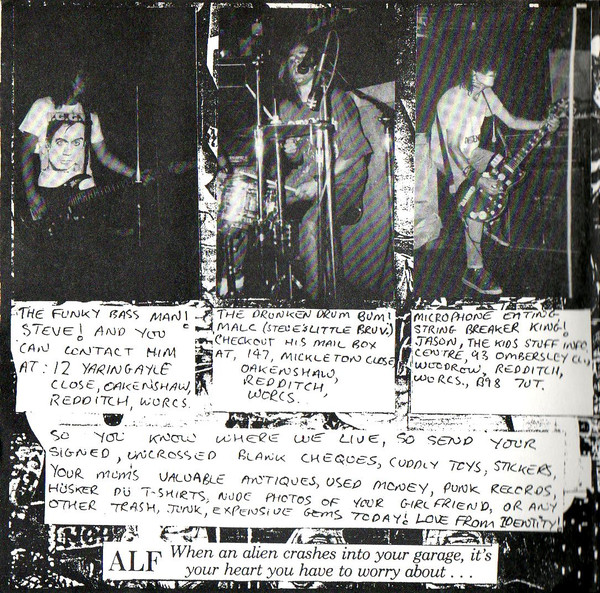 THE FUNKY BASS MAN!
STEVE! AND YOU
CAN CONTACT HIM
AT: 12 YARINGAYLE
CLOSE, OAKENSHAW,
REDDITCH, WORCS.
THE DRUNKEN DRUM BUM!
MALC (STEVE'S LITTLE BRUV)
CHECKOUT HIS MAIL BOX
AT, 147, MICKLETON CLOSE
OAKENSHAW,
REDDITCH,
WORCS.
MICROPHONE EATING
STRING BREAKER KING!
JASON, THE KIDS STUFF INFO,
CENTRE, 93 OMBERSLEY CL,
WOODROW, REDDITCH,
WORCS., B98 7UT.
SO YOU KNOW WHERE WE LIVE, SO SEND YOUR
SIGNED, UNCROSSED BLANK CHEQUES, CUDDLY TOYS, STICKERS,
YOUR MUMS VALUABLE ANTIQUES, USED MONEY, PUNK RECORDS,
HÜSKER DÜ T-SHIRTS, NUDE PHOTOS OF YOUR GIRLFRIEND, OR ANY
OTHER TRASH, JUNK, EXPENSIVE GEMS TODAY! LOVE FROM IDENTITY!
ALF When an alien crashes into your garage, it's
your heart you have to worry about . . .